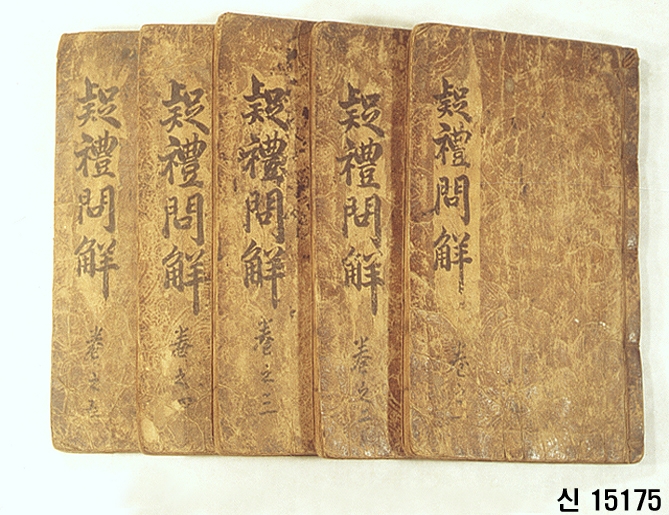 疑禮問解
卷之一
疑禮問解
卷之二
疑禮問解
卷之三
疑禮問解
卷之四
疑禮問解
卷之五
신 15175